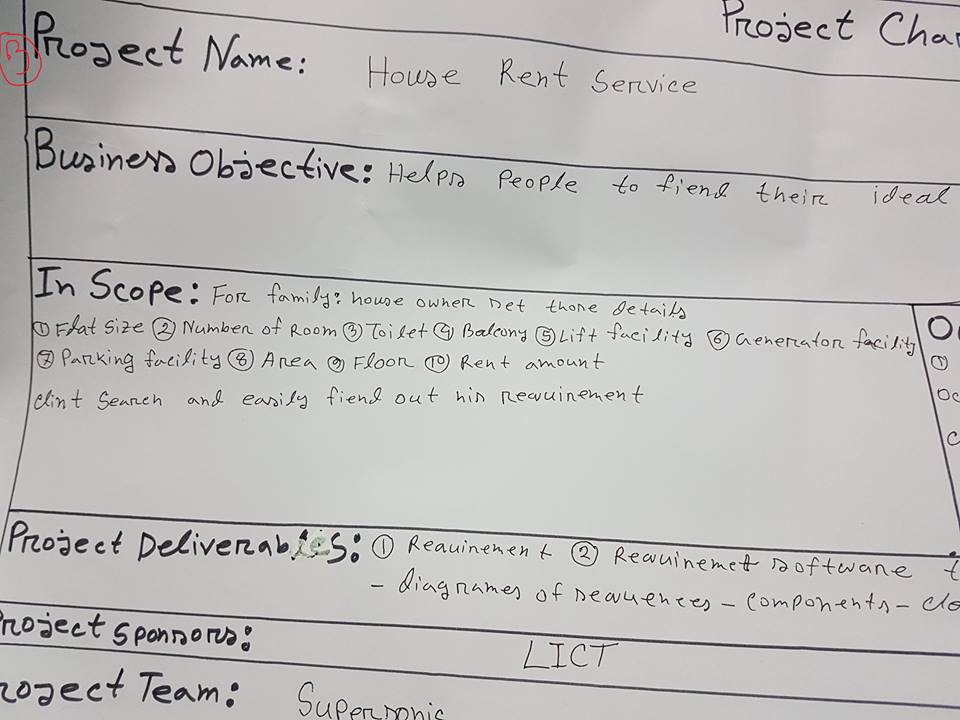 Project Cha
3
Project Name: House Rent Service
Business Objective: Helps People to fiend their ideal
In Scope: For family: house owner set those details
① Flat size ② Number of Room ③ Toilet ④ Balcony ⑤ Lift facility ⑥ Generator facility
⑦ Parking facility ⑧ Area ⑨ Floor ⑩ Rent amount
clint Search and easily fiend out his requirement
O
①
oc
c
Project Deliverables: ① Requirement ② Requiremet software t
- diagrames of sequences - components - cla
Project Sponsors: LICT
roject Team: Supersonic